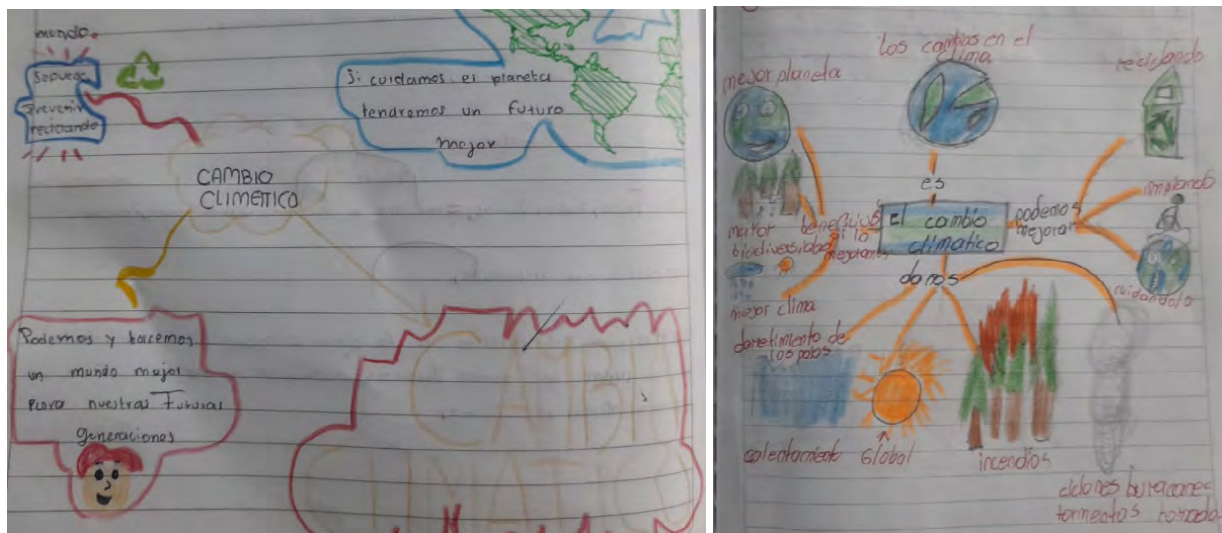 mundo.
Se puede
Prevenir
reciclando
Si cuidamos el planeta
tendremos un futuro
mejor
CAMBIO
CLIMETICO
Podemos y hacemos
un mundo mejor
para nuestras Futuras
generaciones
CAMBIO
CLIMATICO
Los cambios en el
clima
mejor planeta
reciclando
es
el cambio
climatico
podemos
mejorar
limpiando
cuidandolo
beneficios
si lo
mejoramos
mayor
biodiversidad
mejor clima
daños
derretimiento de
los polos
calentamiento Global
incendios
ciclones huracanes
tormentas tornados